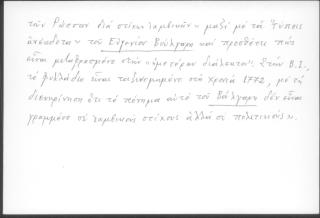 τῶν Ρώσσων διὰ στίχων ἰαμβικῶν - μαζὶ μὲ τὰ
ἀνέκδοτα - τοῦ Εὐγενίου Βούλγαρη καὶ προσθέτει πὼς
εἶναι μεταφρασμένο στὴν "ἡμετέραν διάλεκτον". Στὴν Β.Ι.,
τὸ φυλλάδιο εἶναι ταξινομημένο στὰ χρονιά 1772, μὲ τὴ
διευκρίνηση ὅτι τὸ πόνημα αὐτὸ τοῦ Βούλγαρη δὲν εἶναι
γραμμένο σὲ ἰαμβικοὺς στίχους ἀλλὰ σὲ πολιτικούς».